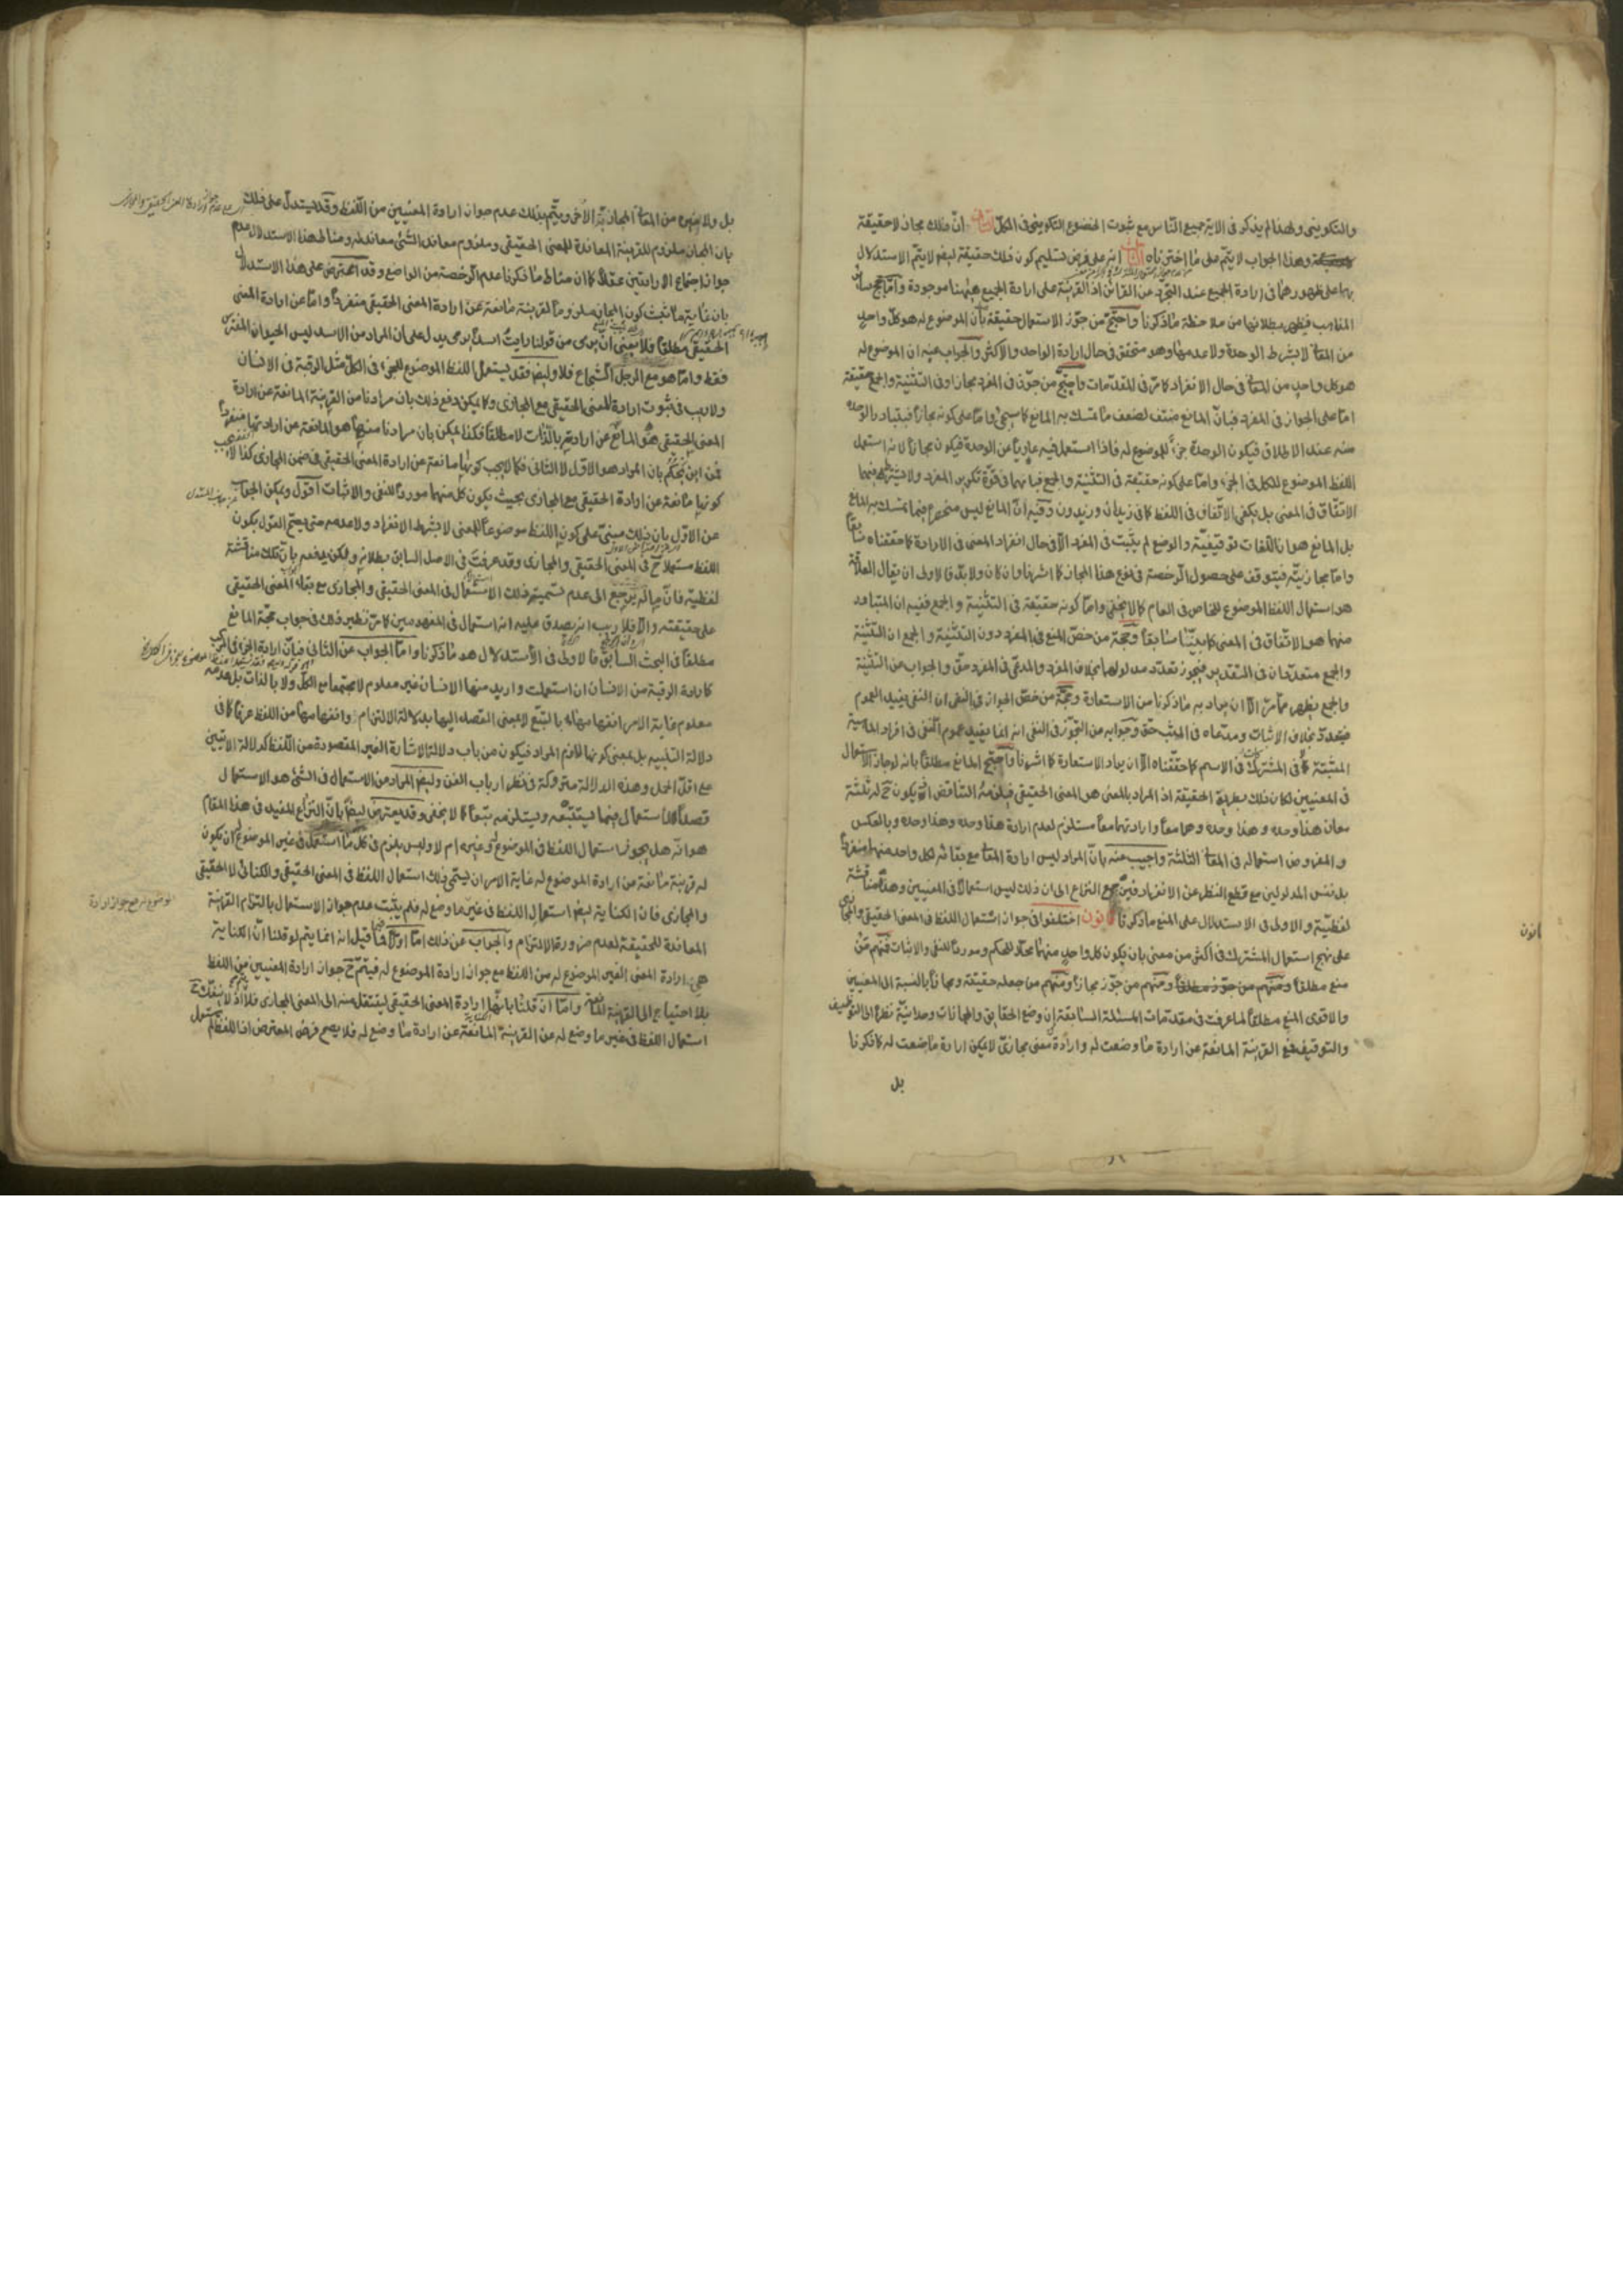 والتكوينى ولهذا لم يذكر فى الاية جميع الناس مع ثبوت الخضوع التكوينى فى الكل الثانى ان ذلك مجاز لا حقيقة
وهذا الجواب لا يتم على ما اخترناه الثالث انه على فرض تسليم كون ذلك حقيقة لا يتم الاستدلال
بها على ظهورهما فى ارادة الجميع عند التجرد عن القرائن اذ القرينة على ارادة الجميع ههنا موجودة واما حجج سائر
المذاهب فيظهر بطلانها من ملاحظة ما ذكرنا واحتج من جوز الاستعمال حقيقة بان الموضوع له هو كل واحد
من المعانى لا بشرط الوحدة ولا عدمها وهو متحقق فى حال ارادة الواحد والاكثر والجواب عنه ان الموضوع له
هو كل واحد من المعانى فى حال الانفراد كما مر فى المقدمات واحتج من جوز فى المفرد مجازا وفى التثنية والجمع حقيقة
اما على الجواز فى المفرد فبان المانع منتف لضعف ما تمسك به المانع كما سيجئ واما على كونه مجازا فبتبادر الوحدة
منه عند الاطلاق فيكون الوحدة جزء للموضوع له فاذا استعمل فيه عاريا عن الوحدة فيكون مجازا لانه استعمل
اللفظ الموضوع للكل فى الجزء واما على كونه حقيقة فى التثنية والجمع فبانهما فى قوة تكرير المفرد ولا يشترط فيهما
الاتفاق فى المعنى بل يكفى الاتفاق فى اللفظ كما فى زيدان وزيدون وفيه ان المانع ليس منحصرا فيما تمسك به المانع
بل المانع هو ان اللغات توقيفية والوضع لم يثبت فى المفرد الا فى حال انفراد المعنى فى الارادة كما حققناه سابقا
واما مجازيته فيتوقف على حصول الرخصة فى نوع هذا المجاز كما اشرنا وان كان ولا بد فالاولى ان يقال العلاقة
هو استعمال اللفظ الموضوع للخاص فى العام كما لا يخفى واما كونه حقيقة فى التثنية والجمع ففيه ان المتبادر
منهما هو الاتفاق فى المعنى كما بينا سابقا وحجة من خص المنع فى المفرد دون التثنية والجمع ان التثنية
والجمع متعددان فى التقدير فيجوز تعدد مدلولهما بخلاف المفرد والمدعى فى المفرد حق والجواب عن التثنية
والجمع يظهر مما مر الا ان يراد به ما ذكرنا من الاستعارة وحجة من خص الجواز فى النفى ان النفى يفيد العموم
فيتعدد بخلاف الاثبات ومدعاه فى المثبت حق وجوابه عن التجوز فى النفى انه انما يفيد عموم النفى فى افراد الماهية
المثبتة كما حققناه الا ان يراد الاستعارة كما اشرنا واحتج المانع مطلقا بانه لو جاز الاستعمال
فى المعنيين لكان ذلك بطريق الحقيقة اذ المراد بالمعنى هو المعنى الحقيقى فيلزم التناقض اذ يكون ح له ثلثة
معان هذا وحده وهذا وحده وهما معا وارادتهما معا مستلزم لعدم ارادة هذا وحده وهذا وحده وبالعكس
والمفروض استعماله فى المعانى الثلثة واجيب عنه بان المراد ليس ارادة المعانى مع بقائه لكل واحد منهما منفردا
بل نفس المدلولين مع قطع النظر عن الانفراد فيرجع النزاع الى ان ذلك ليس استعمالا فى المعنيين وهذا مناقشة
لفظية والاولى فى الاستدلال على المنع ما ذكرنا قانون اختلفوا فى جواز استعمال اللفظ فى المعنى الحقيقى والمجازى
على نهج استعمال المشترك فى اكثر من معنى بان يكون كل واحد منهما محلا للحكم وموردا للنفى والاثبات فمنهم من
منع مطلقا ومنهم من جوز مطلقا ومنهم من جوز مجازا ومنهم من جعله حقيقة ومجازا بالنسبة الى المعنيين
والاقوى المنع مطلقا لما عرفت فى مقدمات المسئلة السابقة ان وضع الحقايق والمجازات وحدانية نظرا الى التوظيف
والتوقيف فمع القرينة المانعة عن ارادة ما وضعت له وارادة معنى مجازى لا يمكن ارادة ما وضعت له كما ذكرنا
بل
قانون
بل ولا غيره من المعانى المجازية الاخر ويتم بذلك عدم جواز ارادة المعنيين من اللفظ وقد يستدل على ذلك
بان المجاز ملزوم للقرينة المعاندة للمعنى الحقيقى وملزوم معاند الشئ معاند له ومناط هذا الاستدلال عدم
جواز اجتماع الارادتين عقلا كما ان مناط ما ذكرنا عدم الرخصة من الواضع وقد اعترض على هذا الاستدلال
بان غاية ما ثبت كون المجاز ملزوما لقرينة مانعة عن ارادة المعنى الحقيقى منفردا واما عن ارادة المعنى
الحقيقى مطلقا فلا يعنى ان يرمى من قولنا رايت اسدا يرمى يدل على ان المراد من الاسد ليس الحيوان المفترس
فقط واما هو مع الرجل الشجاع فلا وايضا فقد يستعمل اللفظ الموضوع للجزء فى الكل مثل الرقبة فى الانسان
ولا ريب فى ثبوت ارادة المعنى الحقيقى مع المجازى وكما يمكن دفع ذلك بان مرادنا من القرينة المانعة عن ارادة
المعنى الحقيقى هو المانع عن ارادته بالذات لا مطلقا فكذا يمكن بان مرادنا منها هو المانعة عن ارادتها منفردا
فمن اين يحكم بان المراد هو الاول لا الثانى فكما لا يجب كونها مانعة عن ارادة المعنى الحقيقى فى ضمن المجازى كذا لا يجب
كونها مانعة عن ارادة الحقيقى مع المجازى بحيث يكون كل منهما موردا للنفى والاثبات اقول ويمكن الجواب
عن الاول بان ذلك مبنى على كون اللفظ موضوعا للمعنى لا بشرط الانفراد ولا عدمه حتى يصح القول بكون
اللفظ مستعملا ح فى المعنى الحقيقى والمجازى وقد عرفت فى الاصل السابق بطلانه ولكن يدفعه بان تلك مناقشة
لفظية فان ماله يرجع الى عدم تسمية ذلك الاستعمال فى المعنى الحقيقى والمجازى مع بقاء المعنى الحقيقى
على حقيقته والا فلا ريب انه يصدق عليه انه استعمال فى المفهومين كما مر نظير ذلك فى جواب حجة المانع
مطلقا فى البحث السابق فالاولى فى الاستدلال هو ما ذكرنا واما الجواب عن الثانى فبان ارادة الجزء فى المركب
كارادة الرقبة من الانسان ان استعملت واريد منها الانسان غير معلوم لا مجتمعا مع الكل ولا بالذات بل عدمه
معلوم غاية الامر انفهامها له بالتبع لا بمعنى القصد اليها بدلالة الالتزام وانفهامها من اللفظ عرفا كما فى
دلالة التنبيه بل بمعنى كونها لازم المراد فيكون من باب دلالة الاشارة الغير المقصودة من اللفظ كدلالة الايتين
مع اقل الحمل وهذه الدلالة متروكة فى نظر ارباب الفن وليس المراد من الاستعمال فى الشئ هو الاستعمال
قصدا لا استعمال فيما يستتبعه ويستلزمه تبعا كما لا يخفى وقد يعترض ايضا بان النزاع المفيد فى هذا المقام
هو انه هل يجوز استعمال اللفظ فى الموضوع له وغيره ام لا وليس يلزم فى كل ما استعمل فى غير الموضوع له ان يكون
له قرينة مانعة من ارادة الموضوع له غاية الامر ان يسمى ذلك استعمال اللفظ فى المعنى الحقيقى والكنائى لا الحقيقى
والمجازى فان الكناية ايضا استعمال اللفظ فى غير ما وضع له فلم يثبت عدم جواز الاستعمال بالتزام القرينة
المعاندة للحقيقة لعدم ضرورة الالتزام والجواب عن ذلك اما اولا فيما قيل انه انما يتم لو قلنا ان الكناية
هى ارادة المعنى الغير الموضوع له من اللفظ مع جواز ارادة الموضوع له فيتم ح جواز ارادة المعنيين من اللفظ
بلا احتياج الى القرينة المانعة واما ان قلنا بانها ارادة المعنى الحقيقى لينتقل منه الى المعنى المجازى فلا اذ لا ينفك ح
استعمال اللفظ فى غير ما وضع له عن القرينة المانعة عن ارادة ما وضع له فلا يصح فرض المعترض ان اللفظ